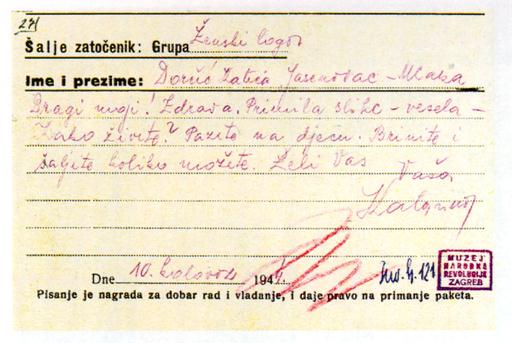 271
Šalje zatočenik: Grupa Ženski logor
Ime i prezime: Dorčić Zatica Jasenovac - Mlaka
Dragi moji! Zdrava. Primila slike - vesela -
Kako živite? Pazite na djecu. Brinite i
šaljite koliko možete. Želi Vas
Vaša
Dne 10. kolovoz 194
Pisanje je nagrada za dobar rad i vladanje, i daje pravo na primanje paketa.
Inv. G. 121
MUZEJ
NARODNE
REVOLUCIJE
ZAGREB